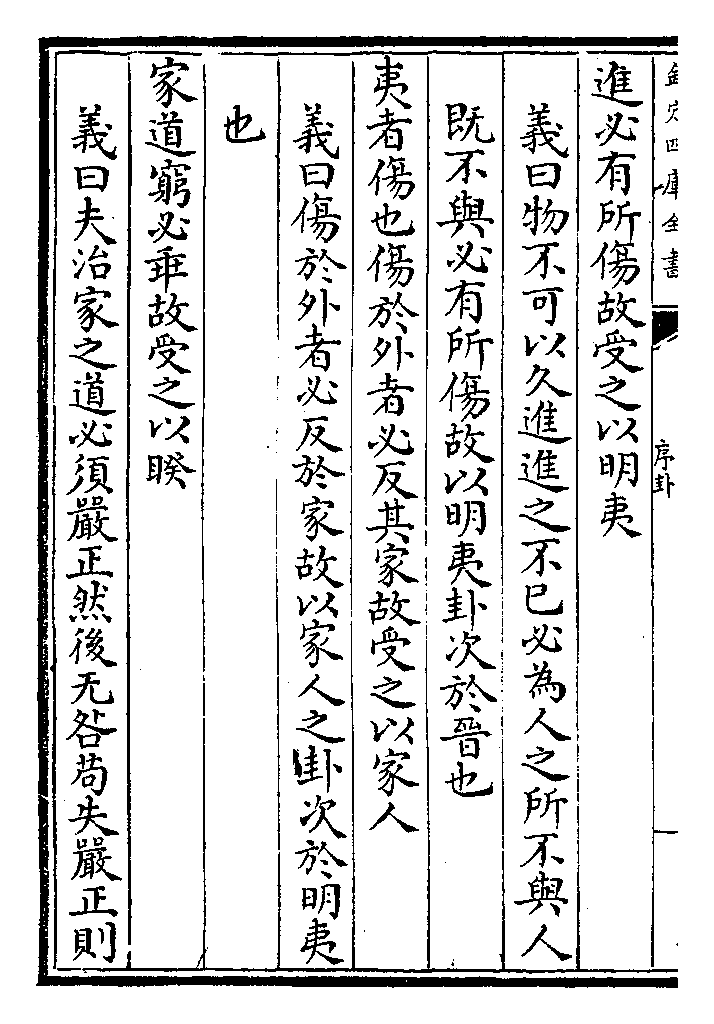 欽定四庫全書
序卦
進必有所傷故受之以明夷
義曰物不可以久進進之不已必為人之所不與人
既不與必有所傷故以明夷卦次於晉也
夷者傷也傷於外者必反其家故受之以家人
義曰傷於外者必反於家故以家人之卦次於明夷
也
家道窮必乖故受之以睽
義曰夫治家之道必須嚴正然後无咎茍失嚴正則